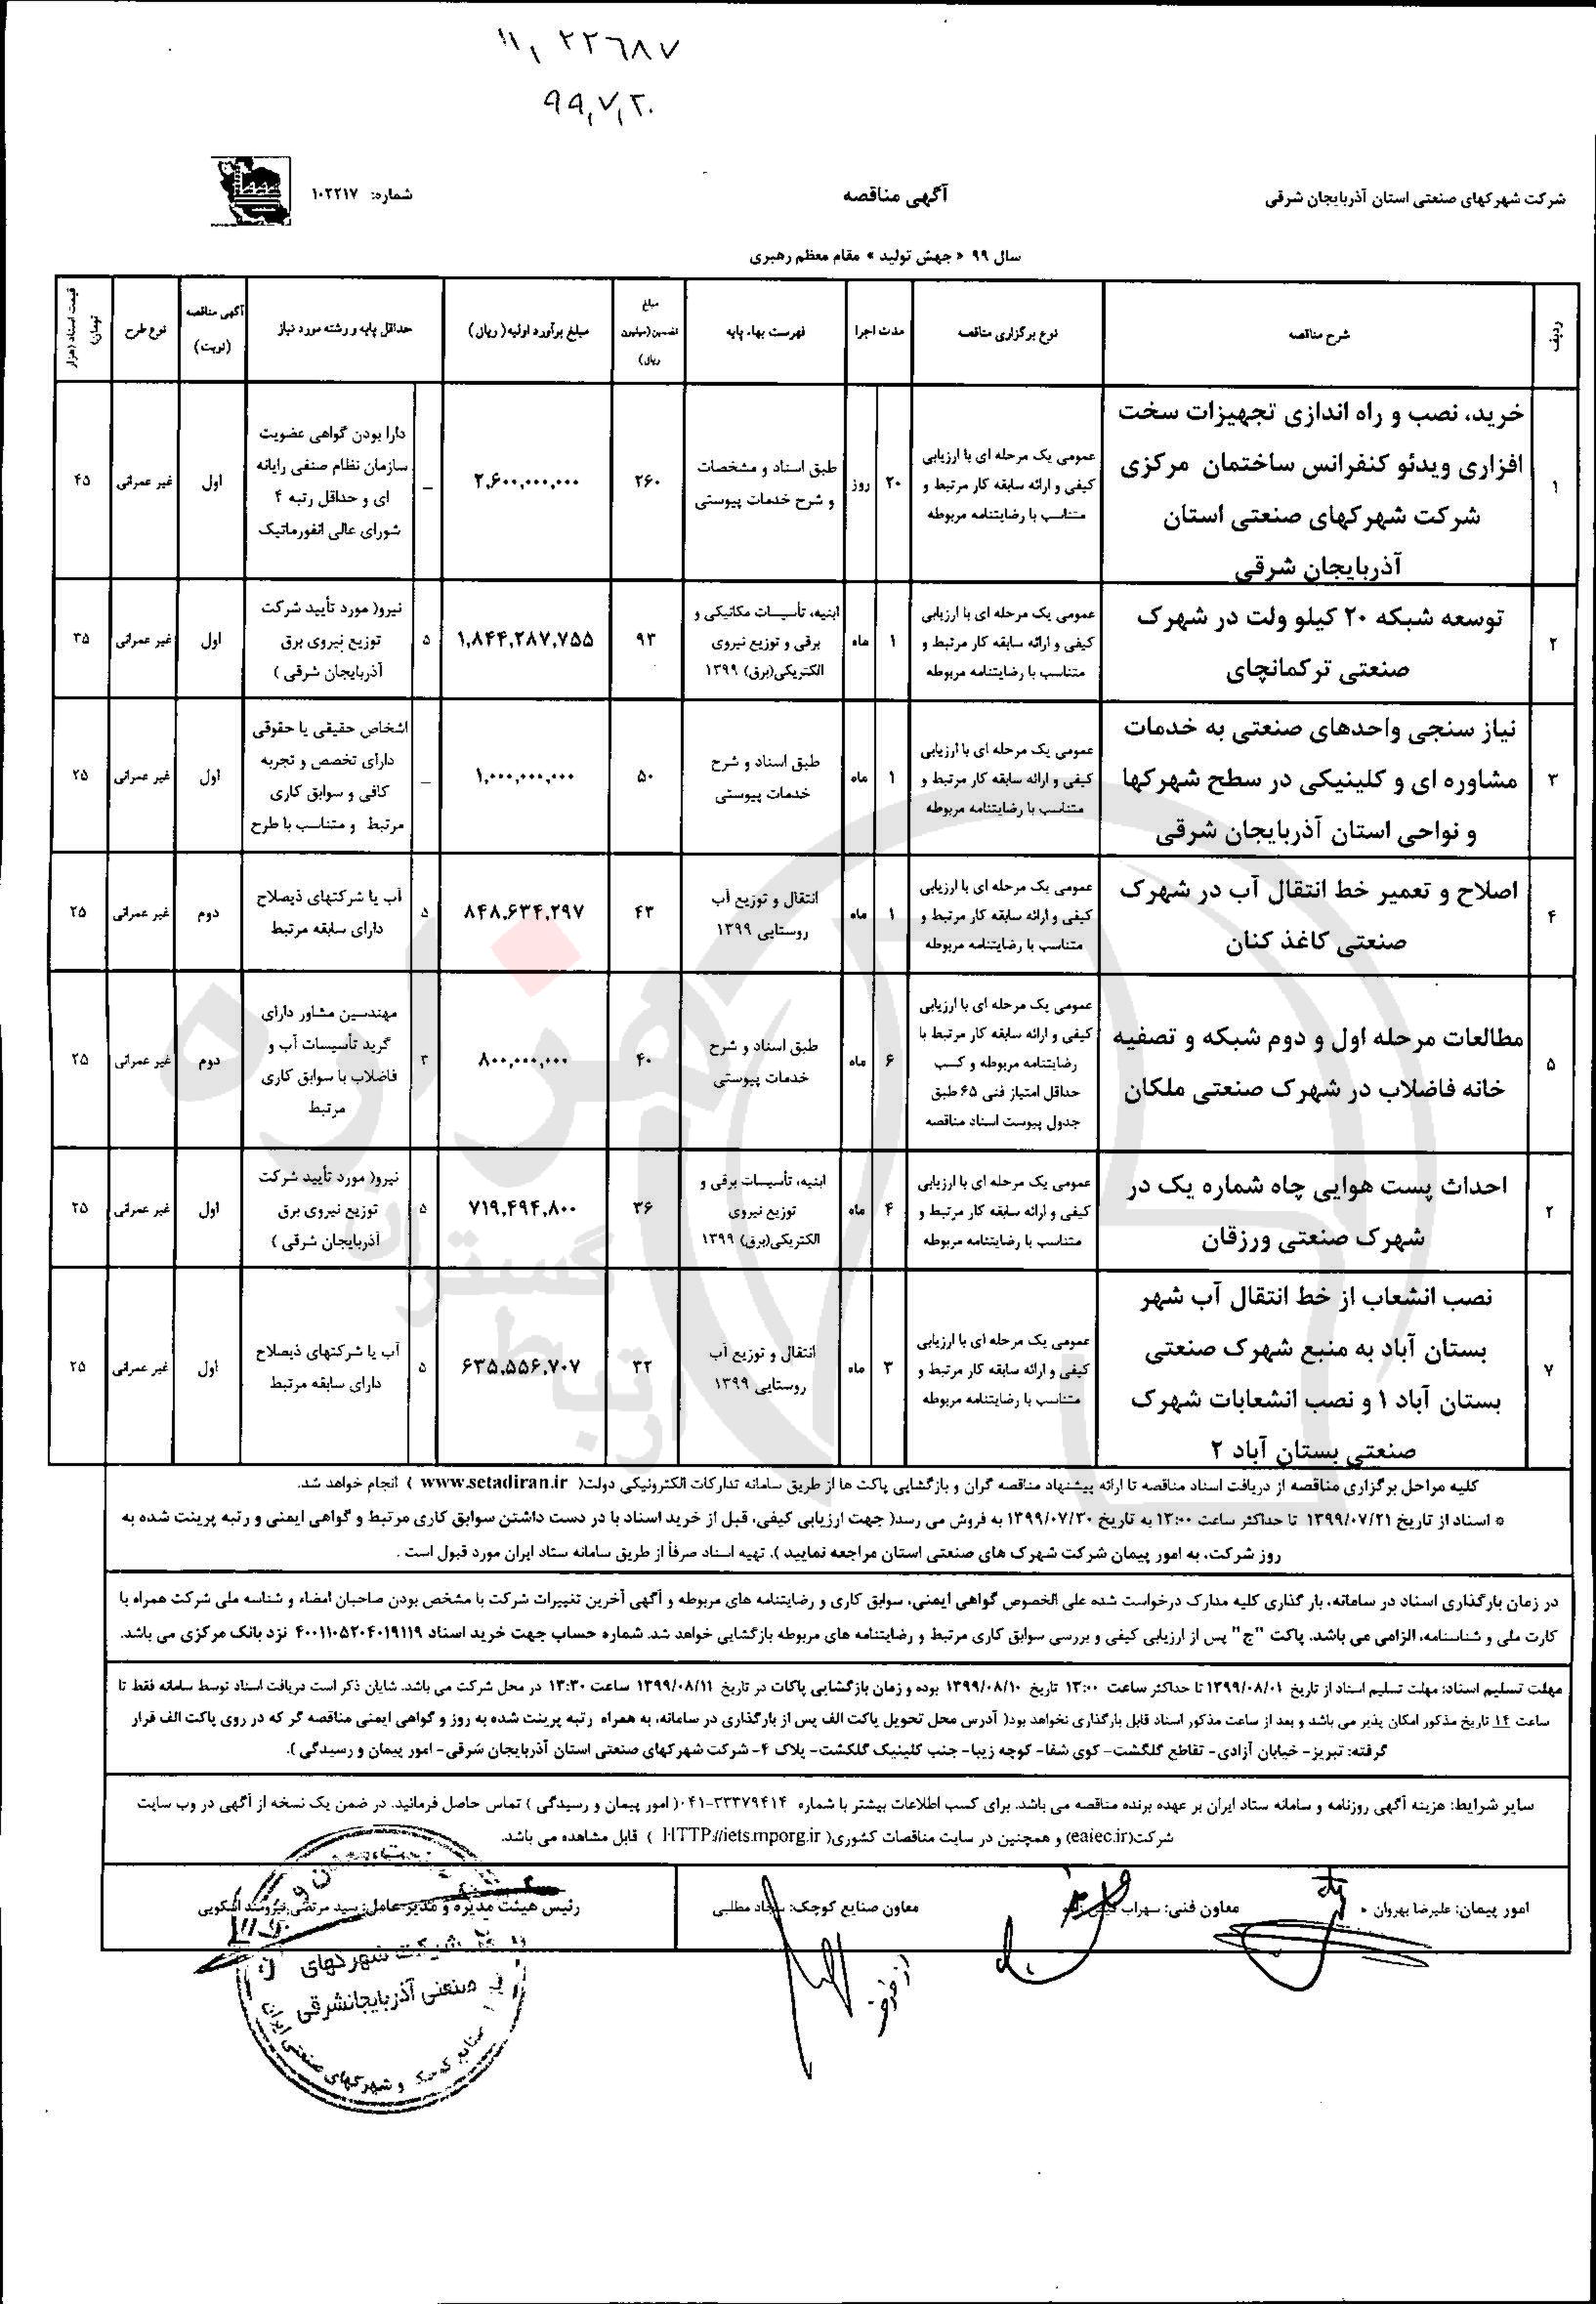 ۱۱, ۲۲۶۸۷
۹۹,۷,۲۰
شرکت شهرکهای صنعتی استان آذربایجان شرقی
آگهی مناقصه
شماره: ۱۰۲۲۱۷
سال ۹۹ « جهش تولید » مقام معظم رهبری
ردیف
شرح مناقصه
نوع برگزاری مناقصه
مدت اجرا
فهرست بهاء پایه
مبلغ
تضمین(میلیون
ریال)
مبلغ برآورد اولیه( ریال)
حداقل پایه و رشته مورد نیاز
آگهی مناقصه
(نوبت)
نوع طرح
قیمت اسناد (هزار
تومان)
۱
خرید، نصب و راه اندازی تجهیزات سخت
افزاری ویدئو کنفرانس ساختمان مرکزی
شرکت شهرکهای صنعتی استان
آذربایجان شرقی
عمومی یک مرحله ای با ارزیابی
کیفی و ارائه سابقه کار مرتبط و
متناسب با رضایتنامه مربوطه
۲۰
روز
طبق اسناد و مشخصات
و شرح خدمات پیوستی
۲۶۰
۲,۶۰۰,۰۰۰,۰۰۰
_
دارا بودن گواهی عضویت
سازمان نظام صنفی رایانه
ای و حداقل رتبه ۴
شورای عالی انفورماتیک
اول
غیر عمرانی
۴۵
۲
توسعه شبکه ۲۰ کیلو ولت در شهرک
صنعتی ترکمانچای
عمومی یک مرحله ای با ارزیابی
کیفی و ارائه سابقه کار مرتبط و
متناسب با رضایتنامه مربوطه
۱
ماه
ابنیه، تأسیسات مکانیکی و
برقی و توزیع نیروی
الکتریکی(برق) ۱۳۹۹
۹۳
۱,۸۴۴,۲۸۷,۷۵۵
۵
نیرو( مورد تأیید شرکت
توزیع نیروی برق
آذربایجان شرقی )
اول
غیر عمرانی
۳۵
۳
نیاز سنجی واحدهای صنعتی به خدمات
مشاوره ای و کلینیکی در سطح شهرکها
و نواحی استان آذربایجان شرقی
عمومی یک مرحله ای با ارزیابی
کیفی و ارائه سابقه کار مرتبط و
متناسب با رضایتنامه مربوطه
۱
ماه
طبق اسناد و شرح
خدمات پیوستی
۵۰
۱,۰۰۰,۰۰۰,۰۰۰
_
اشخاص حقیقی یا حقوقی
دارای تخصص و تجربه
کافی و سوابق کاری
مرتبط و متناسب با طرح
اول
غیر عمرانی
۲۵
۴
اصلاح و تعمیر خط انتقال آب در شهرک
صنعتی کاغذ کنان
عمومی یک مرحله ای با ارزیابی
کیفی و ارائه سابقه کار مرتبط و
متناسب با رضایتنامه مربوطه
۱
ماه
انتقال و توزیع آب
روستایی ۱۳۹۹
۴۳
۸۴۸,۶۳۴,۲۹۷
۵
آب یا شرکتهای ذیصلاح
دارای سابقه مرتبط
دوم
غیر عمرانی
۲۵
۵
مطالعات مرحله اول و دوم شبکه و تصفیه
خانه فاضلاب در شهرک صنعتی ملکان
عمومی یک مرحله ای با ارزیابی
کیفی و ارائه سابقه کار مرتبط با
رضایتنامه مربوطه و کسب
حداقل امتیاز فنی ۶۵ طبق
جدول پیوست اسناد مناقصه
۶
ماه
طبق اسناد و شرح
خدمات پیوستی
۴۰
۸۰۰,۰۰۰,۰۰۰
۳
مهندسین مشاور دارای
گرید تأسیسات آب و
فاضلاب با سوابق کاری
مرتبط
دوم
غیر عمرانی
۲۵
۲
احداث پست هوایی چاه شماره یک در
شهرک صنعتی ورزقان
عمومی یک مرحله ای با ارزیابی
کیفی و ارائه سابقه کار مرتبط و
متناسب با رضایتنامه مربوطه
۴
ماه
ابنیه، تأسیسات برقی و
توزیع نیروی
الکتریکی(برق) ۱۳۹۹
۳۶
۷۱۹,۴۹۴,۸۰۰
۵
نیرو( مورد تأیید شرکت
توزیع نیروی برق
آذربایجان شرقی )
اول
غیر عمرانی
۲۵
۷
نصب انشعاب از خط انتقال آب شهر
بستان آباد به منبع شهرک صنعتی
بستان آباد ۱ و نصب انشعابات شهرک
صنعتی بستان آباد ۲
عمومی یک مرحله ای با ارزیابی
کیفی و ارائه سابقه کار مرتبط و
متناسب با رضایتنامه مربوطه
۳
ماه
انتقال و توزیع آب
روستایی ۱۳۹۹
۳۲
۶۳۵,۵۵۶,۷۰۷
۵
آب یا شرکتهای ذیصلاح
دارای سابقه مرتبط
اول
غیر عمرانی
۲۵
کلیه مراحل برگزاری مناقصه از دریافت اسناد مناقصه تا ارائه پیشنهاد مناقصه گران و بازگشایی پاکت ها از طریق سامانه تدارکات الکترونیکی دولت( www.setadiran.ir ) انجام خواهد شد.
* اسناد از تاریخ ۱۳۹۹/۰۷/۲۱ تا حداکثر ساعت ۱۳:۰۰ به تاریخ ۱۳۹۹/۰۷/۳۰ به فروش می رسد( جهت ارزیابی کیفی، قبل از خرید اسناد با در دست داشتن سوابق کاری مرتبط و گواهی ایمنی و رتبه پرینت شده به
روز شرکت، به امور پیمان شرکت شهرک های صنعتی استان مراجعه نمایید )، تهیه اسناد صرفاً از طریق سامانه ستاد ایران مورد قبول است .
در زمان بارگذاری اسناد در سامانه، بار گذاری کلیه مدارک درخواست شده علی الخصوص گواهی ایمنی، سوابق کاری و رضایتنامه های مربوطه و آگهی آخرین تغییرات شرکت با مشخص بودن صاحبان امضاء و شناسه ملی شرکت همراه با
کارت ملی و شناسنامه، الزامی می باشد. پاکت "ج" پس از ارزیابی کیفی و بررسی سوابق کاری مرتبط و رضایتنامه های مربوطه بازگشایی خواهد شد. شماره حساب جهت خرید اسناد ۴۰۰۱۱۰۵۲۰۴۰۱۹۱۱۹ نزد بانک مرکزی می باشد.
مهلت تسلیم اسناد: مهلت تسلیم اسناد از تاریخ ۱۳۹۹/۰۸/۰۱ تا حداکثر ساعت ۱۳:۰۰ تاریخ ۱۳۹۹/۰۸/۱۰ بوده و زمان بازگشایی پاکات در تاریخ ۱۳۹۹/۰۸/۱۱ ساعت ۱۳:۳۰ در محل شرکت می باشد. شایان ذکر است دریافت اسناد توسط سامانه فقط تا
ساعت ۱۴ تاریخ مذکور امکان پذیر می باشد و بعد از ساعت مذکور اسناد قابل بارگذاری نخواهد بود( آدرس محل تحویل پاکت الف پس از بارگذاری در سامانه، به همراه رتبه پرینت شده به روز و گواهی ایمنی مناقصه گر که در روی پاکت الف قرار
گرفته: تبریز- خیابان آزادی- تقاطع گلگشت- کوی شفا- کوچه زیبا- جنب کلینیک گلگشت- پلاک ۴- شرکت شهرکهای صنعتی استان آذربایجان شرقی- امور پیمان و رسیدگی ).
سایر شرایط: هزینه آگهی روزنامه و سامانه ستاد ایران بر عهده برنده مناقصه می باشد. برای کسب اطلاعات بیشتر با شماره ۰۴۱-۳۳۳۷۹۴۱۴( امور پیمان و رسیدگی ) تماس حاصل فرمائید. در ضمن یک نسخه از آگهی در وب سایت
شرکت(eaiec.ir) و همچنین در سایت مناقصات کشوری( HTTP://iets.mporg.ir ) قابل مشاهده می باشد.
امور پیمان: علیرضا بهروان
معاون فنی: سهراب
معاون صنایع کوچک: سجاد مطلبی
رئیس هیئت مدیره و مدیر عامل: سید مرتضی نیرومند اسکویی
شرکت شهرکهای
صنعتی آذربایجانشرقی
صنایع کوچک و شهرکهای صنعتی ایران
هزاره
گستر